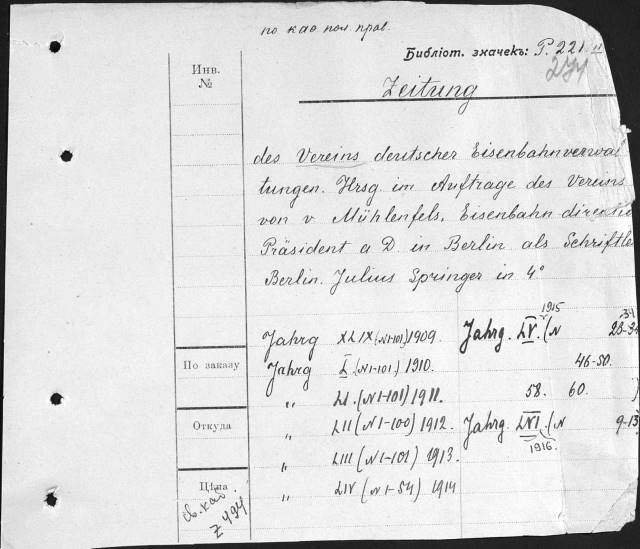 по као пол. прав.
Библіот. значекъ: P. 221. II
274
Инв.
№
Zeitung
des Vereins deutscher Eisenbahnverwal
tungen. Hrsg. im Auftrage des Vereins
von v Mühlenfels, Eisenbahn directio
Präsident a D. in Berlin als Schriftle
Berlin. Julius Springer in 4°
Jahrg XLIX (N1-101) 1909.
Jahrg L (N1-101) 1910.
" LI. (N1-101) 1911.
" LII (N1-100) 1912.
" LIII (N1-101) 1913.
" LIV (N1-54) 1914
1915
Jahrg. LV. (N 28-34
46-50.
58. 60. )
Jahrg. LVI. (N 9-13
1916.
По заказу
Откуда
Цѣна
св. као.
Z 494